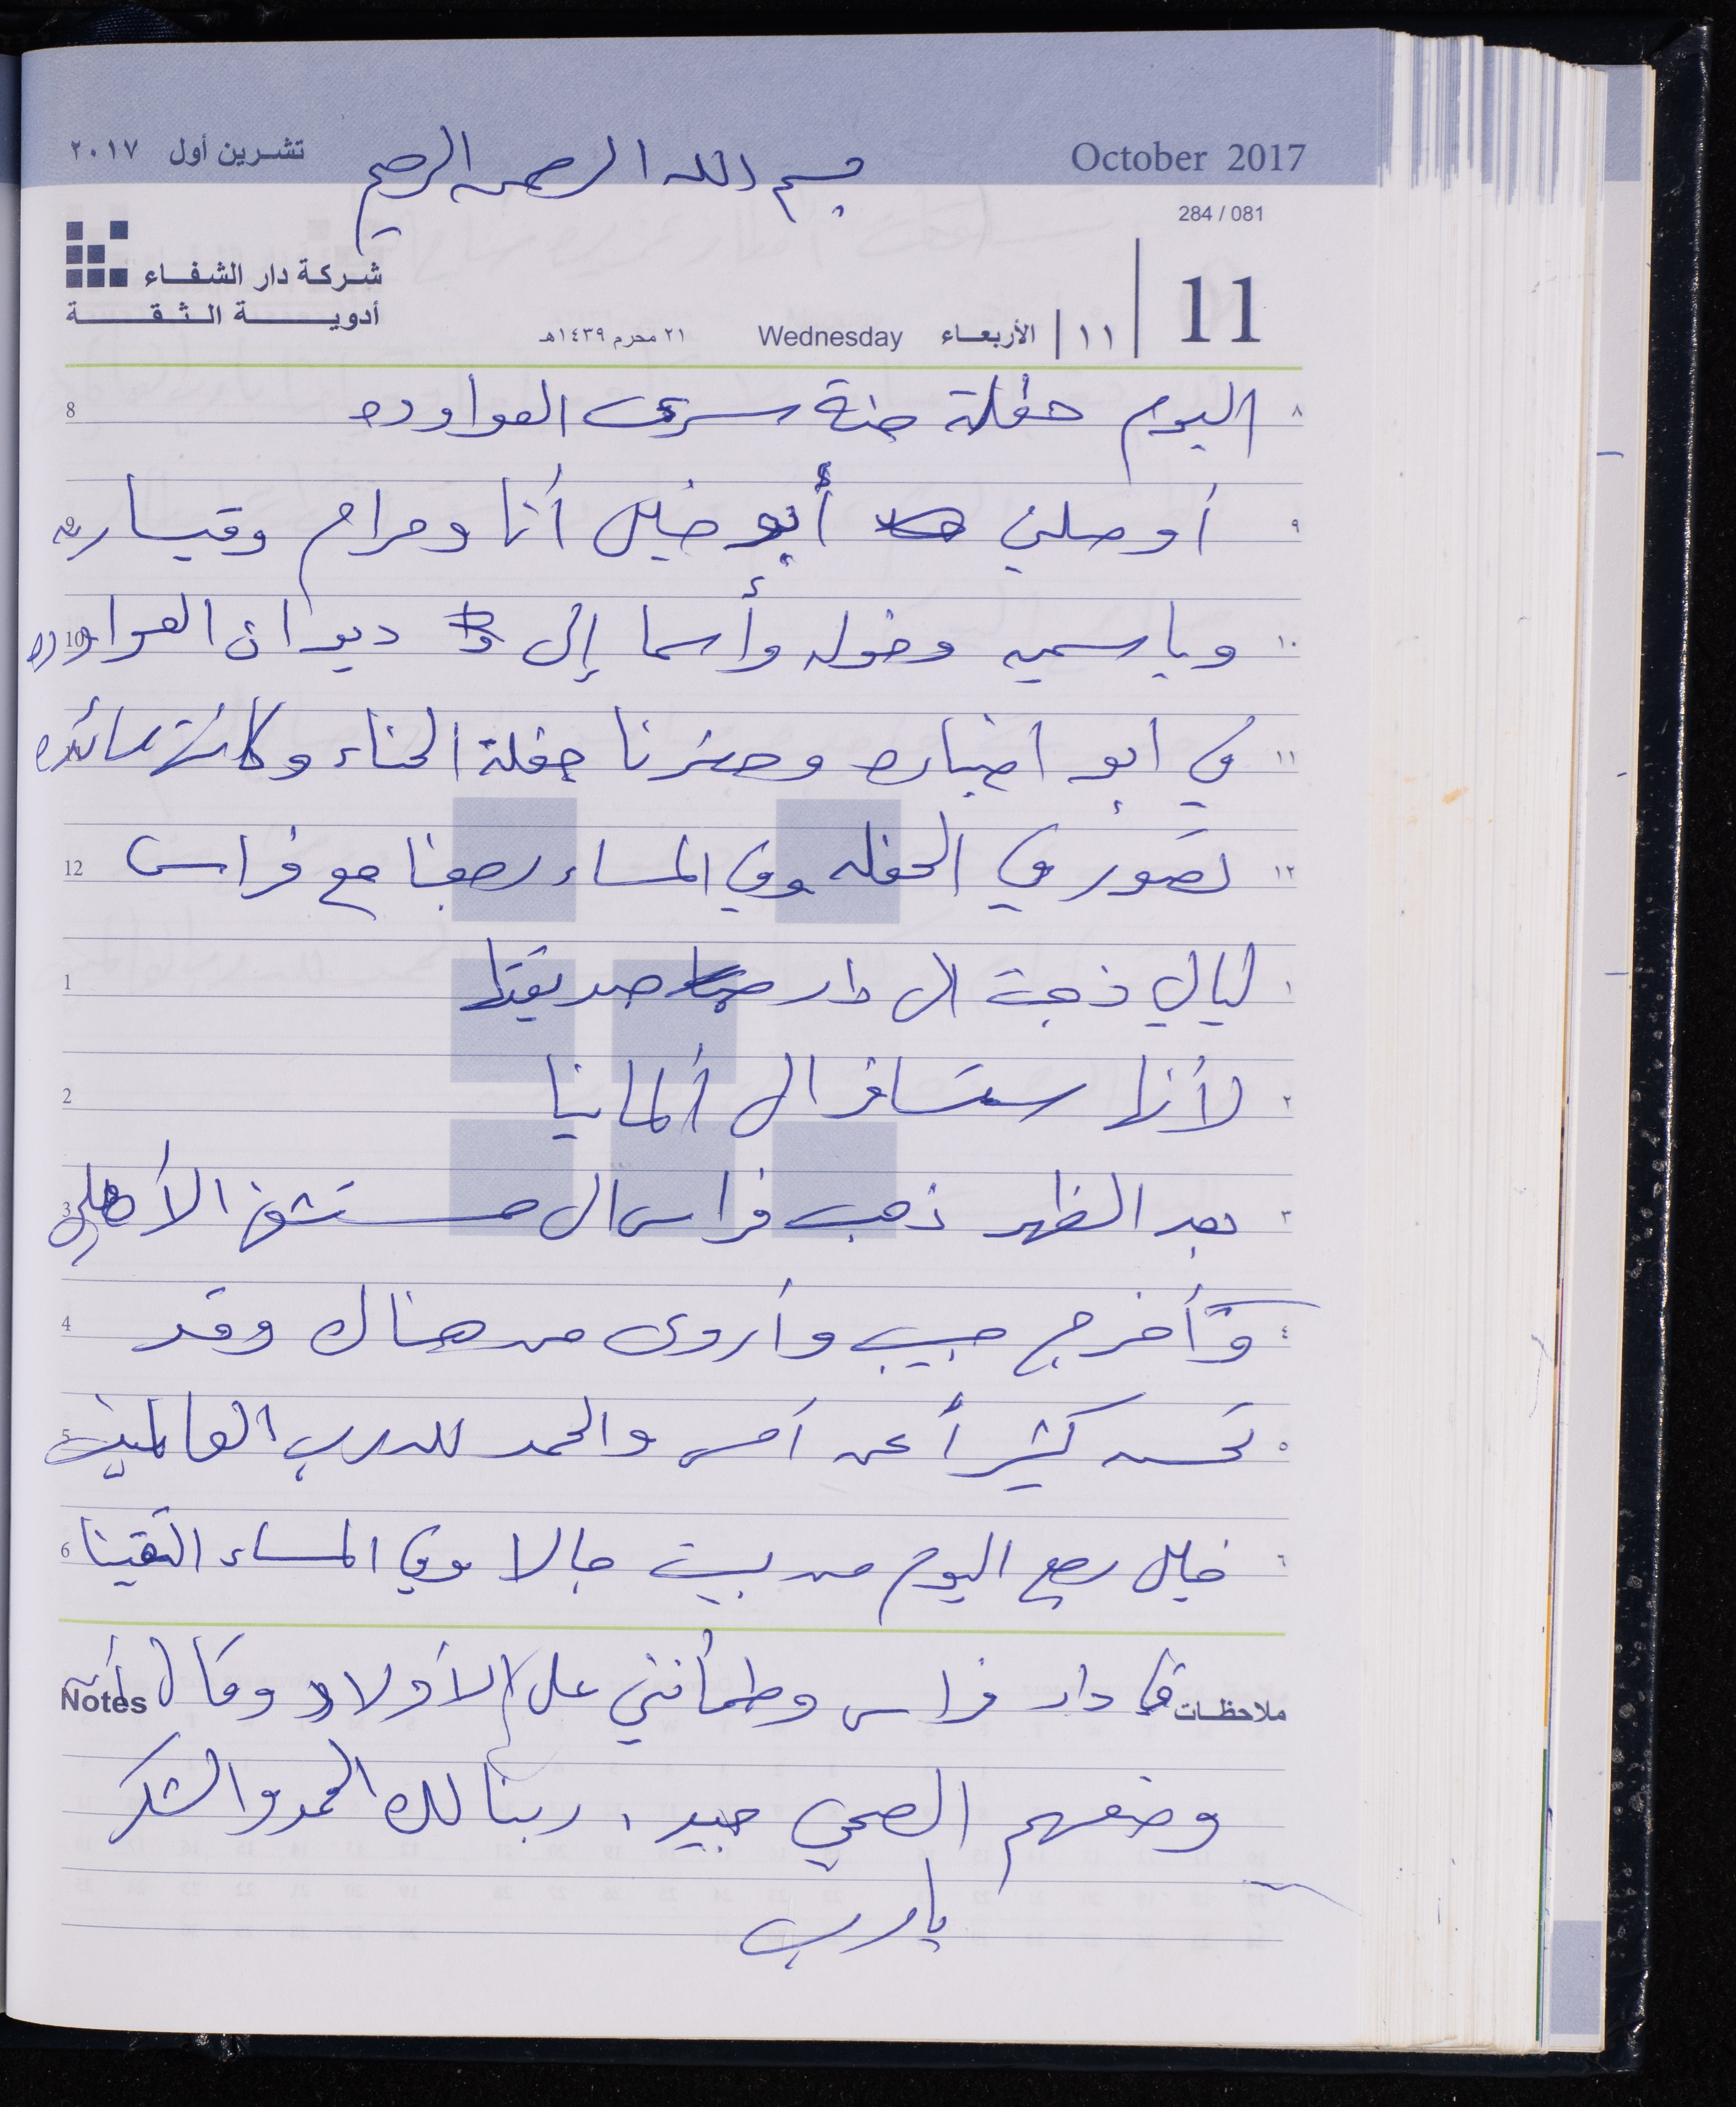 October 2017
بسم الله الرحمن الرحيم
تشرين أول ٢٠١٧
284 / 081
11
١١
الأربعاء Wednesday
٢١ محرم ١٤٣٩هـ
شركة دار الشفاء
أدوية الثقة
٨ اليوم حفلة حنة سرى العواوده 8
٩ أوصلني أبو خليل أنا ومرام وقيسارية 9
١٠ وياسمين وخوله وأسما إلى ديوان العواوده 10
١١ في ابو اخباره وحضرنا حفلة الحناء وكانت مائده
١٢ تصور في الحفله وفي المساء رجعنا مع فراس 12
١ ليالي ذهبت الى دار صديقتها 1
٢ لأنها ستسافر الى ألمانيا 2
٣ بعد الظهر ذهب فراس الى مستشفى الأهلي 3
٤ وأخرج حبيب وأروى من هناك وقد 4
٥ تحسن كثيراً عن أمس والحمد لله رب العالمين 5
٦ خليل رجع اليوم من بيت جالا وفي المساء التقينا 6
ملاحظات في دار فراس وطمأنني على الأولاد وقال أن Notes
وضعهم الصحي جيد، ربنا لك الحمد والشكر
يا رب